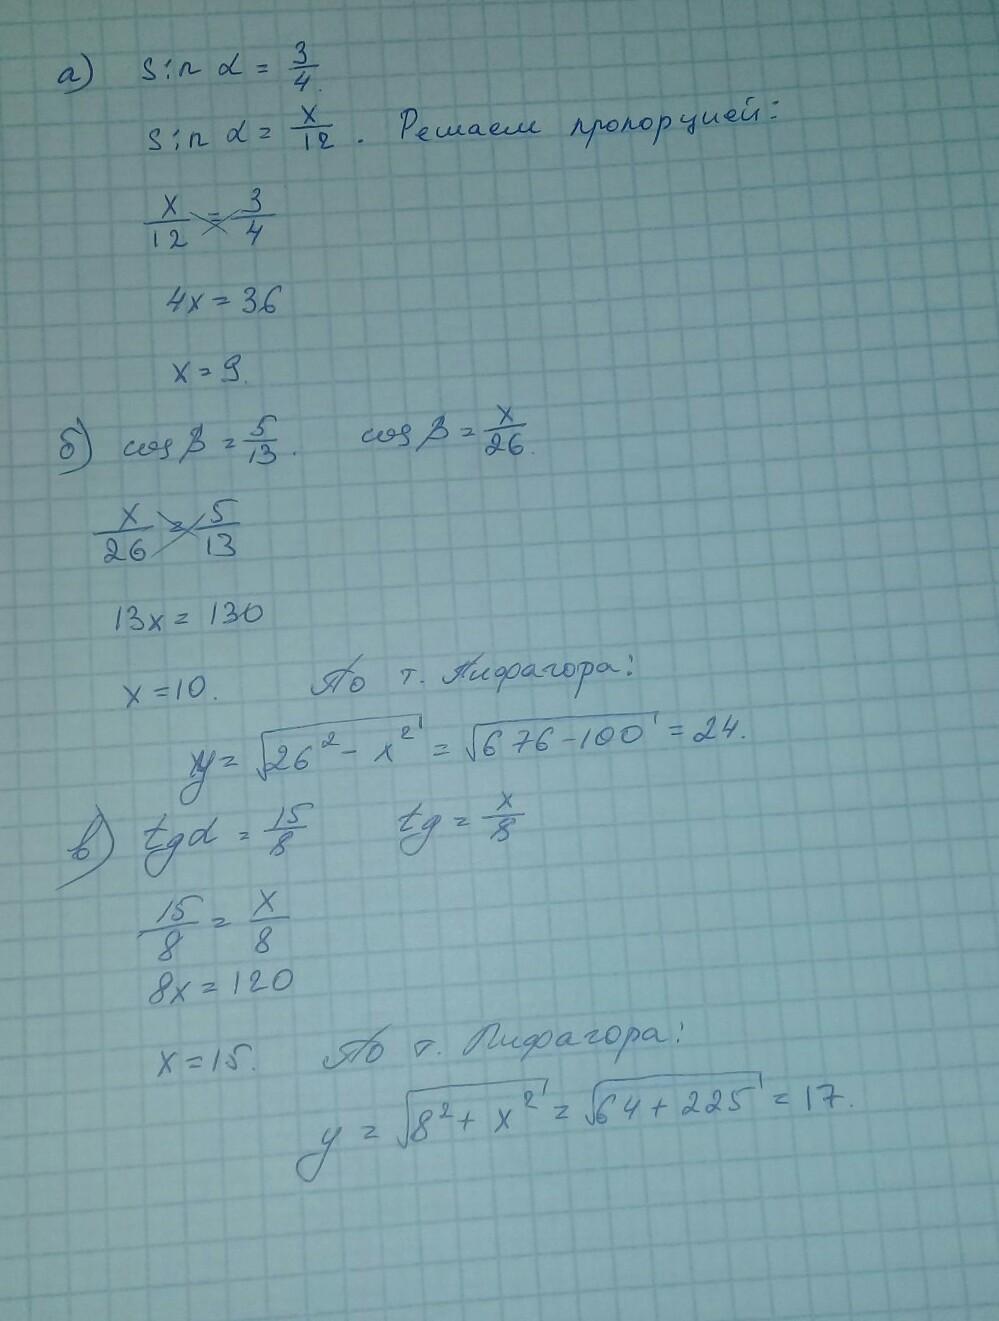 а) sin α = 3/4.
sin α = x/12. Решаем пропорцией:
x/12 = 3/4
4x = 36
x = 9.
б) cos β = 5/13. cos β = x/26.
x/26 = 5/13
13x = 130
x = 10. По т. Пифагора:
y = √(26² - x²) = √(676 - 100) = 24.
в) tg α = 15/8 tg = x/8
15/8 = x/8
8x = 120
x = 15. По т. Пифагора:
y = √(8² + x²) = √(64 + 225) = 17.